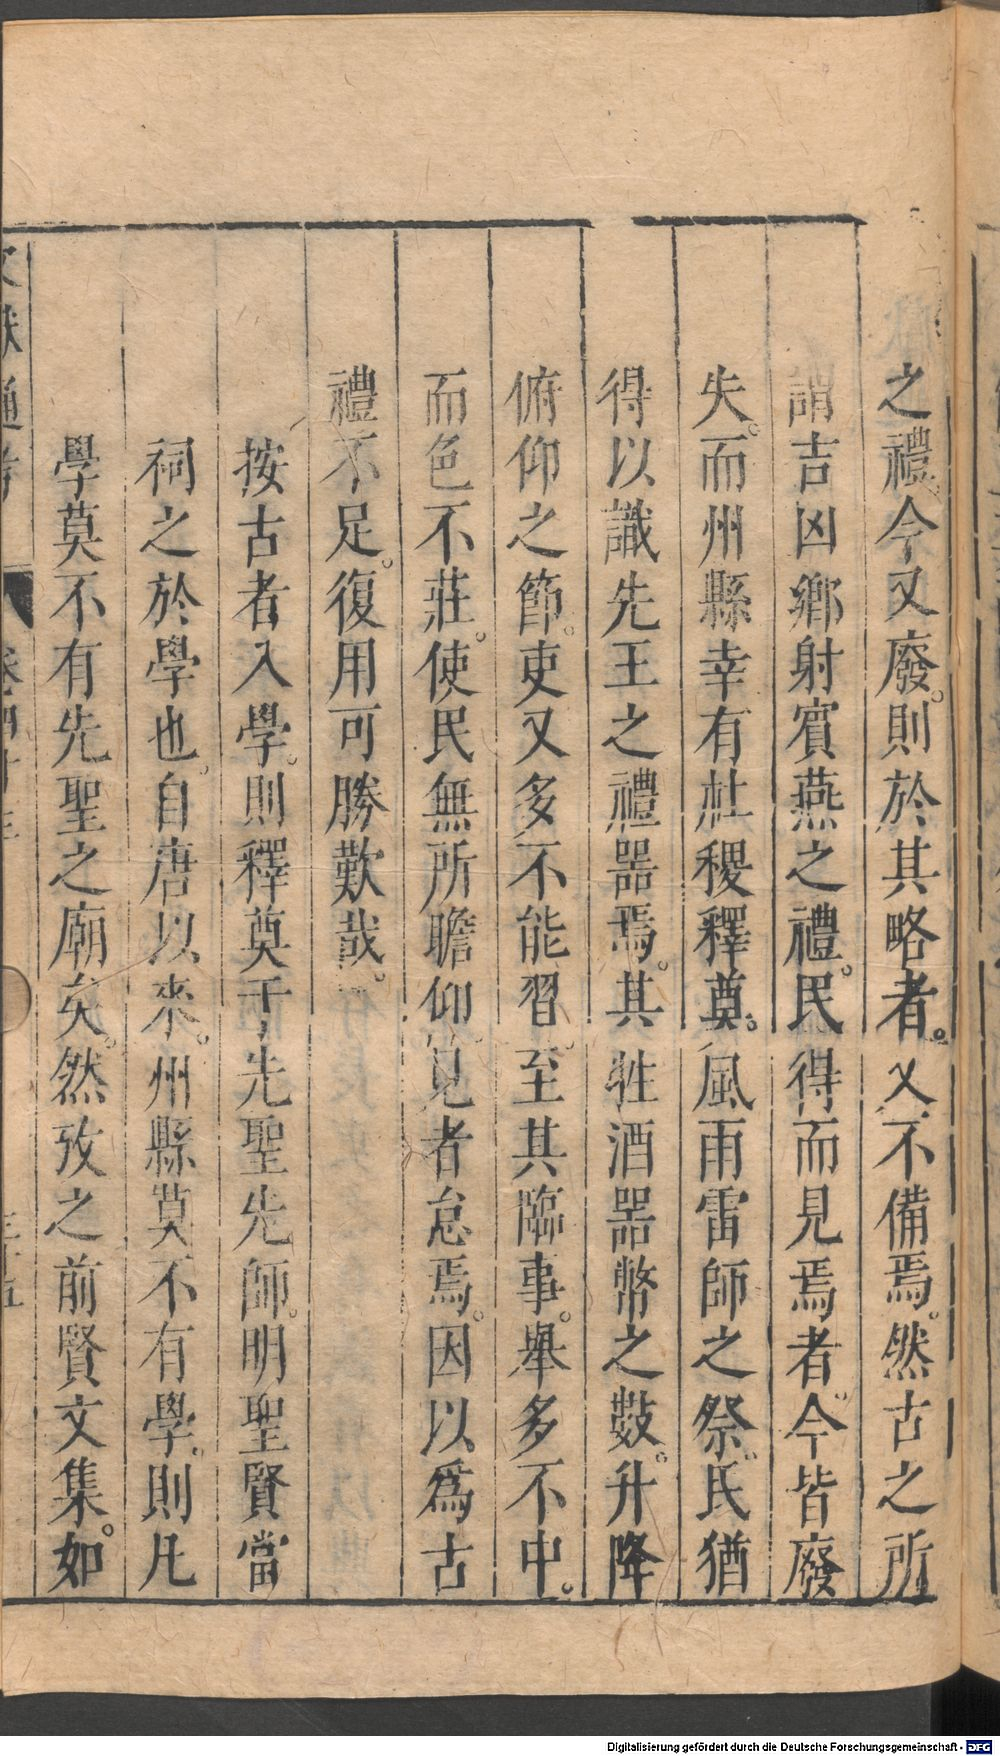 之禮。今又廢。則於其略者。又不備焉。然古之所
謂吉凶鄉射賓燕之禮。民得而見焉者。今皆廢
失。而州縣幸有社稷釋奠。風雨雷師之祭。民猶
得以識先王之禮噐焉。其牲酒噐幣之數。升降
俯仰之節。吏又多不能習。至其臨事。舉多不中。
而色不莊。使民無所瞻仰。見者怠焉。因以為古
禮不足。復用可勝歎哉。
按古者入學。則釋奠于先聖先師。明聖賢當
祠之於學也。自唐以來。州縣莫不有學。則凡
學莫不有先聖之廟矣。然攷之前賢文集。如
文獻通考 卷四十三
Digitalisierung gefördert durch die Deutsche Forschungsgemeinschaft - DFG